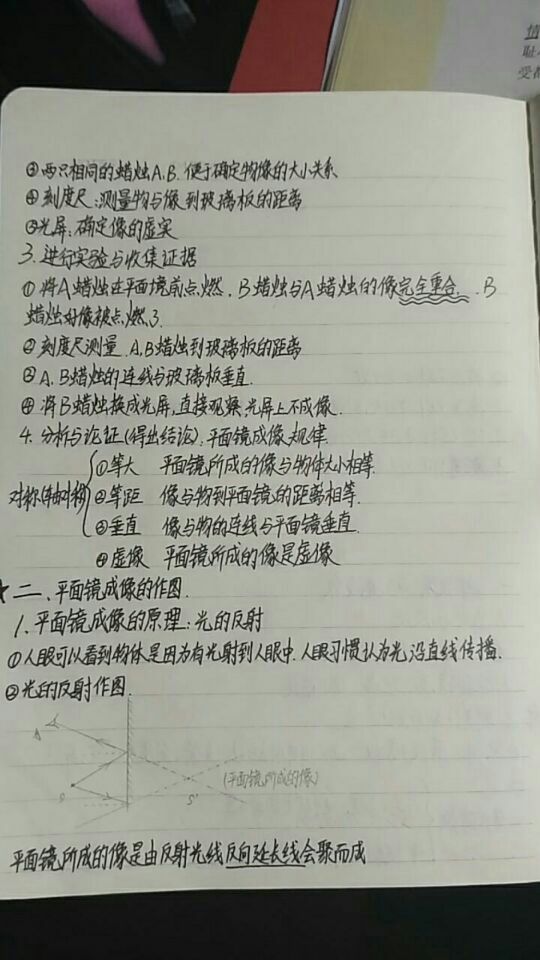 情
耻
受者
③两只相同的蜡烛A、B.便于确定物像的大小关系
④刻度尺:测量物与像到玻璃板的距离
⑤光屏:确定像的虚实
3.进行实验与收集证据
①将A蜡烛在平面镜前点燃,B蜡烛与A蜡烛的像完全重合.B
蜡烛好像被点燃了.
②刻度尺测量.A,B蜡烛到玻璃板的距离
③A、B蜡烛的连线与玻璃板垂直.
④将B蜡烛换成光屏,直接观察,光屏上不成像.
4.分析与论证(得出结论),平面镜成像规律.
①等大 平面镜所成的像与物体大小相等.
对称(轴对称) ②等距 像与物到平面镜的距离相等.
③垂直 像与物的连线与平面镜垂直.
④虚像 平面镜所成的像是虚像
二、平面镜成像的作图.
1.平面镜成像的原理:光的反射
①人眼可以看到物体是因为有光射到人眼中.人眼习惯认为光沿直线传播.
②光的反射作图.
(平面镜所成的像)
S S'
平面镜所成的像是由反射光线反向延长线会聚而成